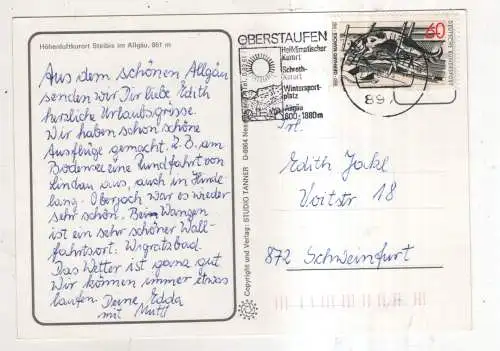 Höhenluftkurort Steibis im Allgäu, 861 m
Aus dem schönen Allgäu
senden wir Dir liebe Edith
herzliche Urlaubsgrüsse.
Wir haben schon schöne
Ausflüge gemacht. Z.B. am
Bodensee eine Rundfahrt von
Lindau aus, auch in Hinde
lang. Oberjoch war es wieder
sehr schön. Bei Wangen
ist ein sehr schöner Wall-
fahrtsort: Wigratzbad.
Das Wetter ist ganz gut
Wir können immer etwas
laufen. Deine Edda
mit Mutti
Copyright und Verlag: STUDIO TANNER D-8964
OBERSTAUFEN
Heilklimatischer
Kurort
Schroth-
kurort
Wintersport-
platz
Allgäu
800-1880m
897
60
DEUTSCHE BUNDESPOST
Frl.
Edith Jackl
Voitstr 18
872 Schweinfurt